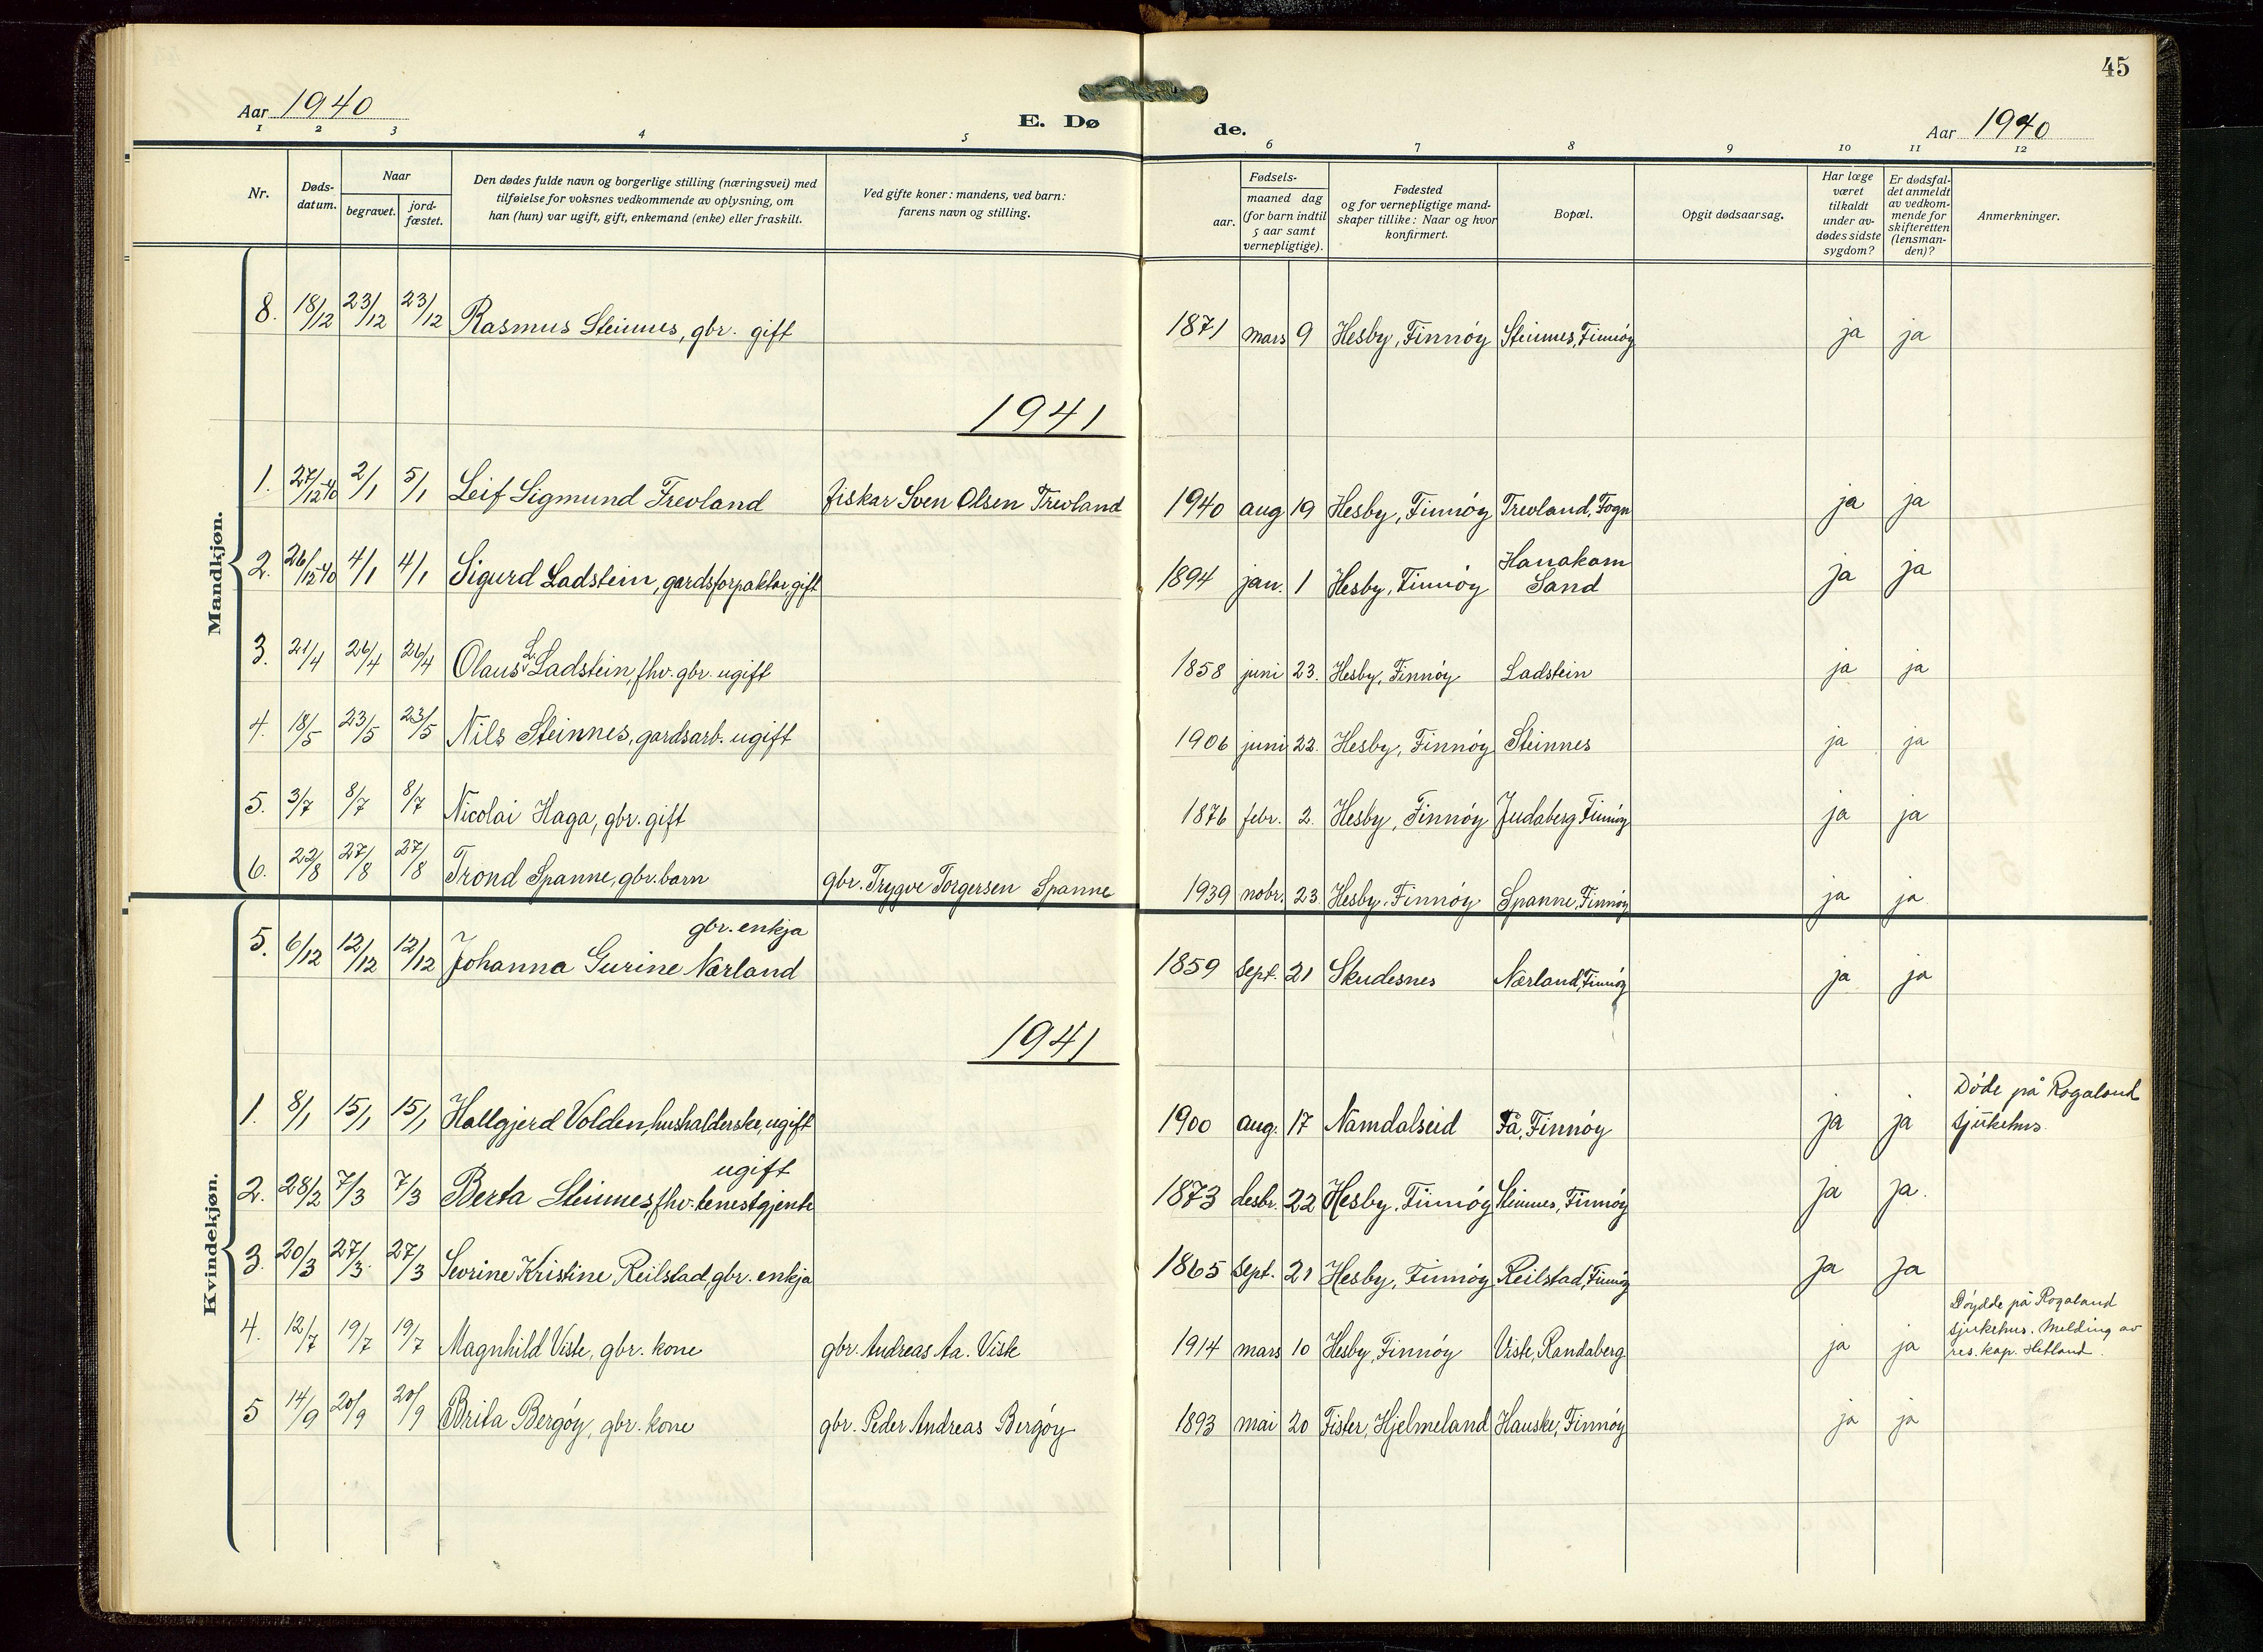 45
Aar 1940
E. Dø de.
Aar 1940
1 2 3 4 5 6 7 8 9 10 11 12
Nr.
Døds-
datum.
Naar
begravet.
jord-
fæstet.
Den dødes fulde navn og borgerlige stilling (næringsvei) med
tilføielse for voksnes vedkommende av oplysning, om
han (hun) var ugift, gift, enkemand (enke) eller fraskilt.
Ved gifte koner: mandens, ved barn:
farens navn og stilling.
Fødsels-
aar.
maaned dag
(for barn indtil
5 aar samt
vernepligtige).
Fødested
og for vernepligtige mand-
skaper tillike: Naar og hvor
konfirmert.
Bopæl.
Opgit dødsaarsag.
Har læge
været
tilkaldt
under av-
dødes sidste
sygdom?
Er dødsfal-
det anmeldt
av vedkom-
mende for
skifteretten
(lensman-
den)?
Anmerkninger.
Mandkjøn.
8. 18/12 23/12 23/12 Rasmus Steinnes, gbr. gift 1871 mars 9 Hesby, Finnøy Steinnes, Finnøy ja ja
1941
1. 27/12-40 2/1 5/1 Leif Sigmund Trevland fiskar Sven Olsen Trevland 1940 aug 19 Hesby, Finnøy Trevland, Fogn ja ja
2. 26/12-40 4/1 4/1 Sigurd Ladstein, gardsforpaktar, gift 1894 jan. 1 Hesby, Finnøy Hanakam Sand ja ja
3. 21/4 26/4 26/4 Olaus L. Ladstein, fhv. gbr. ugift 1858 juni 23. Hesby, Finnøy Ladstein ja ja
4. 18/5 23/5 23/5 Nils Steinnes, gardsarb. ugift 1906 juni 22. Hesby, Finnøy Steinnes ja ja
5. 3/7 8/7 8/7 Nicolai Haga, gbr. gift 1876 febr. 2. Hesby, Finnøy Judaberg Finnøy ja ja
6. 22/8 27/8 27/8 Trond Spanne, gbr. barn gbr. Trygve Torgersen Spanne 1939 nobr. 23. Hesby, Finnøy Spanne, Finnøy ja ja
Kvindekjøn.
gbr. enkja
5. 6/12 12/12 12/12 Johanna Gurine Nærland 1859 Sept. 21 Skudesnes Nærland, Finnøy ja ja
1941
1. 8/1 15/1 15/1 Hallgjerd Volden, hushalderske, ugift 1900 aug. 17 Namdalseid Få, Finnøy ja ja Døde på Rogaland
sjukehus.
ugift
2. 28/2 7/3 7/3 Berta Steinnes, fhv. tenestgjente 1873 desbr. 22 Hesby, Finnøy Steinnes, Finnøy ja ja.
3. 20/3 27/3. 27/3 Sevrine Kristine Reilstad, gbr. enkja 1865 Sept. 21 Hesby, Finnøy Reilstad, Finnøy ja ja
4. 12/7 19/7 19/7 Magnhild Viste, gbr. kone gbr. Andreas Aa. Viste 1914 mars 10 Hesby, Finnøy Viste, Randaberg. ja ja Døydde på Rogaland
sjukehus. Melding av
res. kap. Hetland.
5 14/9 20/9 20/9 Brita Bergøy, gbr. kone gbr. Peder Andreas Bergøy 1893 mai 20 Fister, Hjelmeland Hauske, Finnøy ja ja